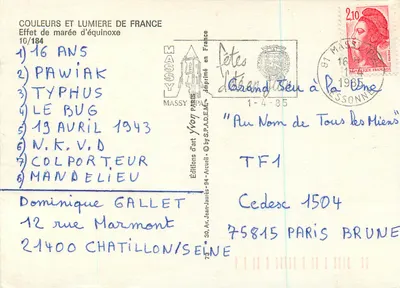 COULEURS ET LUMIERE DE FRANCE
Effet de marée d'équinoxe
10/184
1) 16 ANS
2) PAWIAK
3) TYPHUS
4) LE BUG
5) 19 AVRIL 1943
6) N.K.V.D
7) COLPORTEUR
8) MANDELIEU
Dominique GALLET
12 rue Marmont
21400 CHATILLON/SEINE
MASSY
MASSY
fêtes
d'été en
1-4-85
Editions d'art yvon
Imprimé en France
2,10
91 MASSY
16
-4
1985
ESSONNE
Grand Jeu à la Une
"Au Nom de Tous les Miens"
TF1
Cedex 1504
75815 PARIS BRUNE